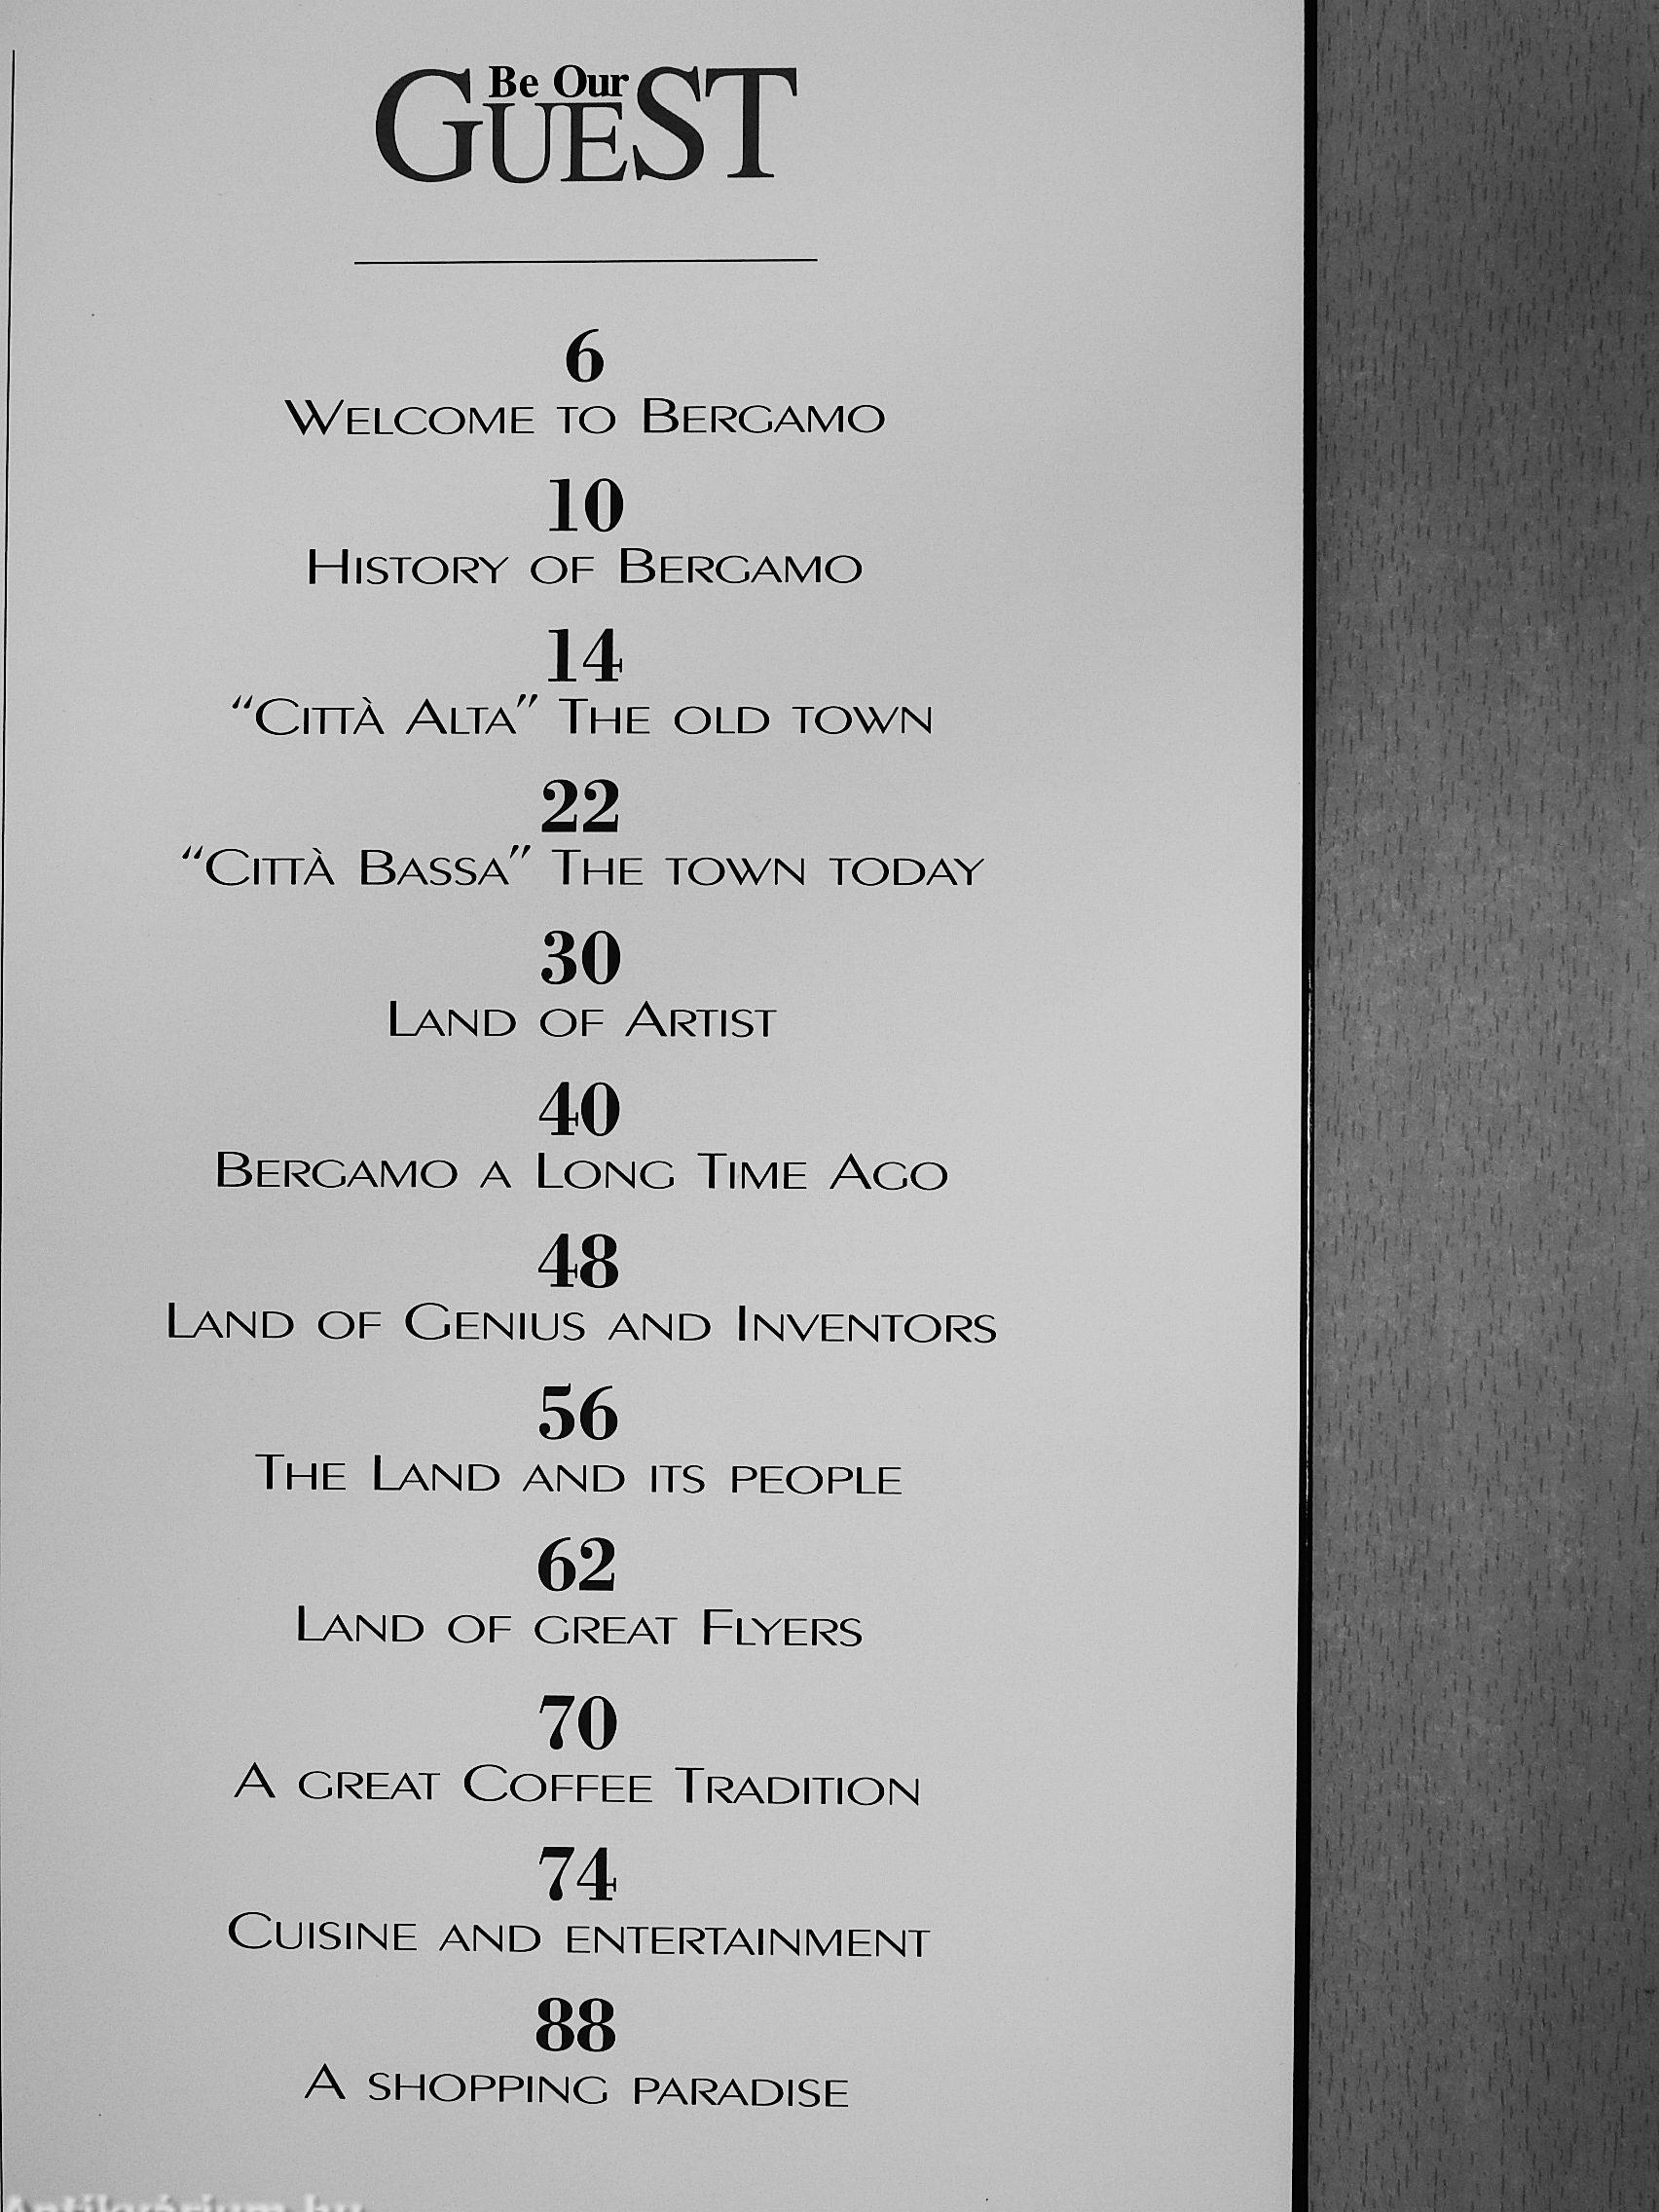 Be Our
GUEST
6
WELCOME TO BERGAMO
10
HISTORY OF BERGAMO
14
“CITTÀ ALTA” THE OLD TOWN
22
“CITTÀ BASSA” THE TOWN TODAY
30
LAND OF ARTIST
40
BERGAMO A LONG TIME AGO
48
LAND OF GENIUS AND INVENTORS
56
THE LAND AND ITS PEOPLE
62
LAND OF GREAT FLYERS
70
A GREAT COFFEE TRADITION
74
CUISINE AND ENTERTAINMENT
88
A SHOPPING PARADISE
Antikvárium.hu